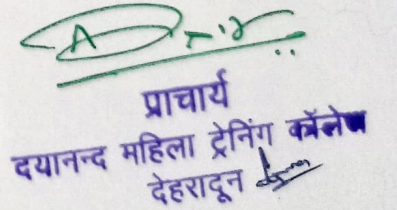 प्राचार्य
दयानन्द महिला ट्रेनिंग कॉलेज
देहरादून